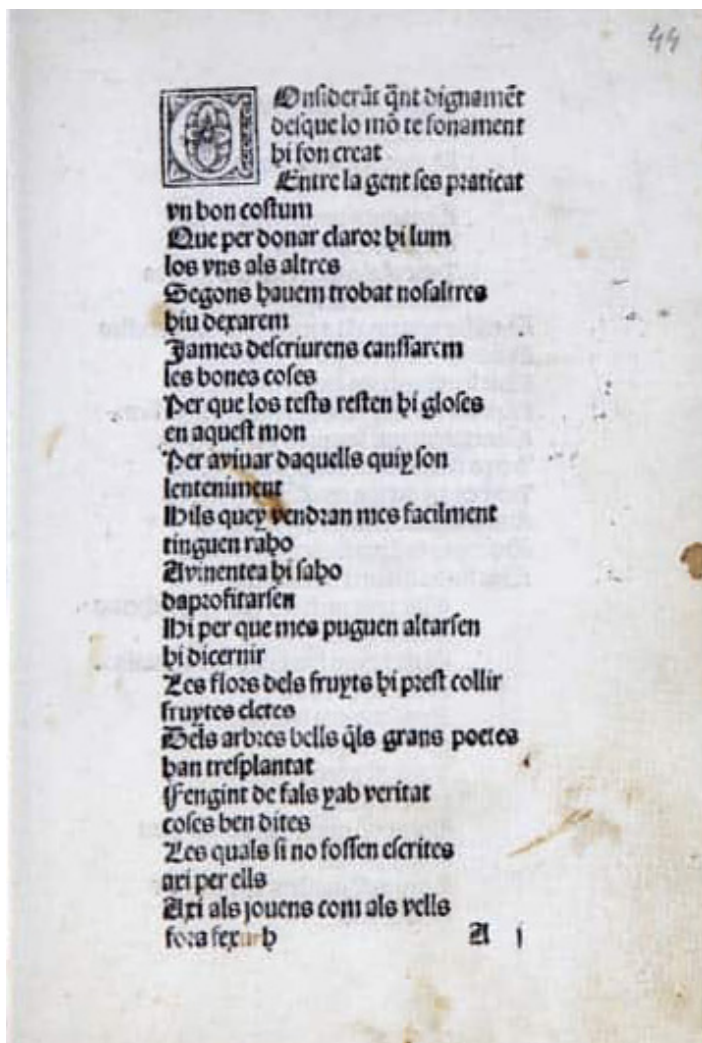 44
COnsiderāt q̄nt dignamēt
desque lo mō te fonament
hi fon creat
Entre la gent ses praticat
vn bon costum
Que per donar claror hi lum
los vns als altres
Segons hauem trobat nosaltres
hiu dexarem
James descriurens canssarem
les bones coses
Per que los tests resten hi gloses
en aquest mon
Per avivar daquells quiy son
lenteniment
Hils quey vendran mes facilment
tinguen raho
Avinentea hi saho
daprofitarsen
Hi per que mes puguen altarsen
hi dicernir
Les flors dels fruyts hi prest collir
fruytes eletes
Dels arbres bells q̄ls grans poetes
han tresplantat
Fengint de fals yab veritat
coses ben dites
Les quals si no fossen escrites
axi per ells
Axi als jouens com als vells
fora
A j